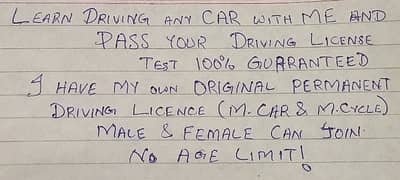 LEARN DRIVING ANY CAR WITH ME AND
PASS YOUR DRIVING LICENSE
TEST 100% GUARRANTEED
I HAVE MY OWN ORIGINAL PERMANENT
DRIVING LICENCE (M.CAR & M.CYCLE)
MALE & FEMALE CAN JOIN.
NO AGE LIMIT!